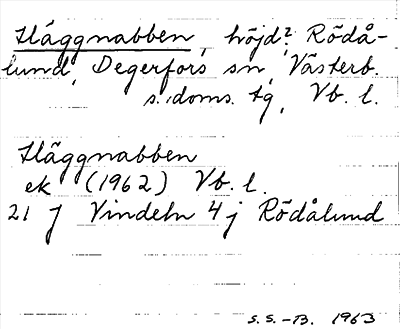 Häggnabben, höjd? Rödå-
lund, Degerfors sn, Västerb.
s. doms. tg, Vb. l.
Häggnabben
ek (1962) Vb. l.
21 J Vindeln 4 j Rödålund
S.S.-B. 1963